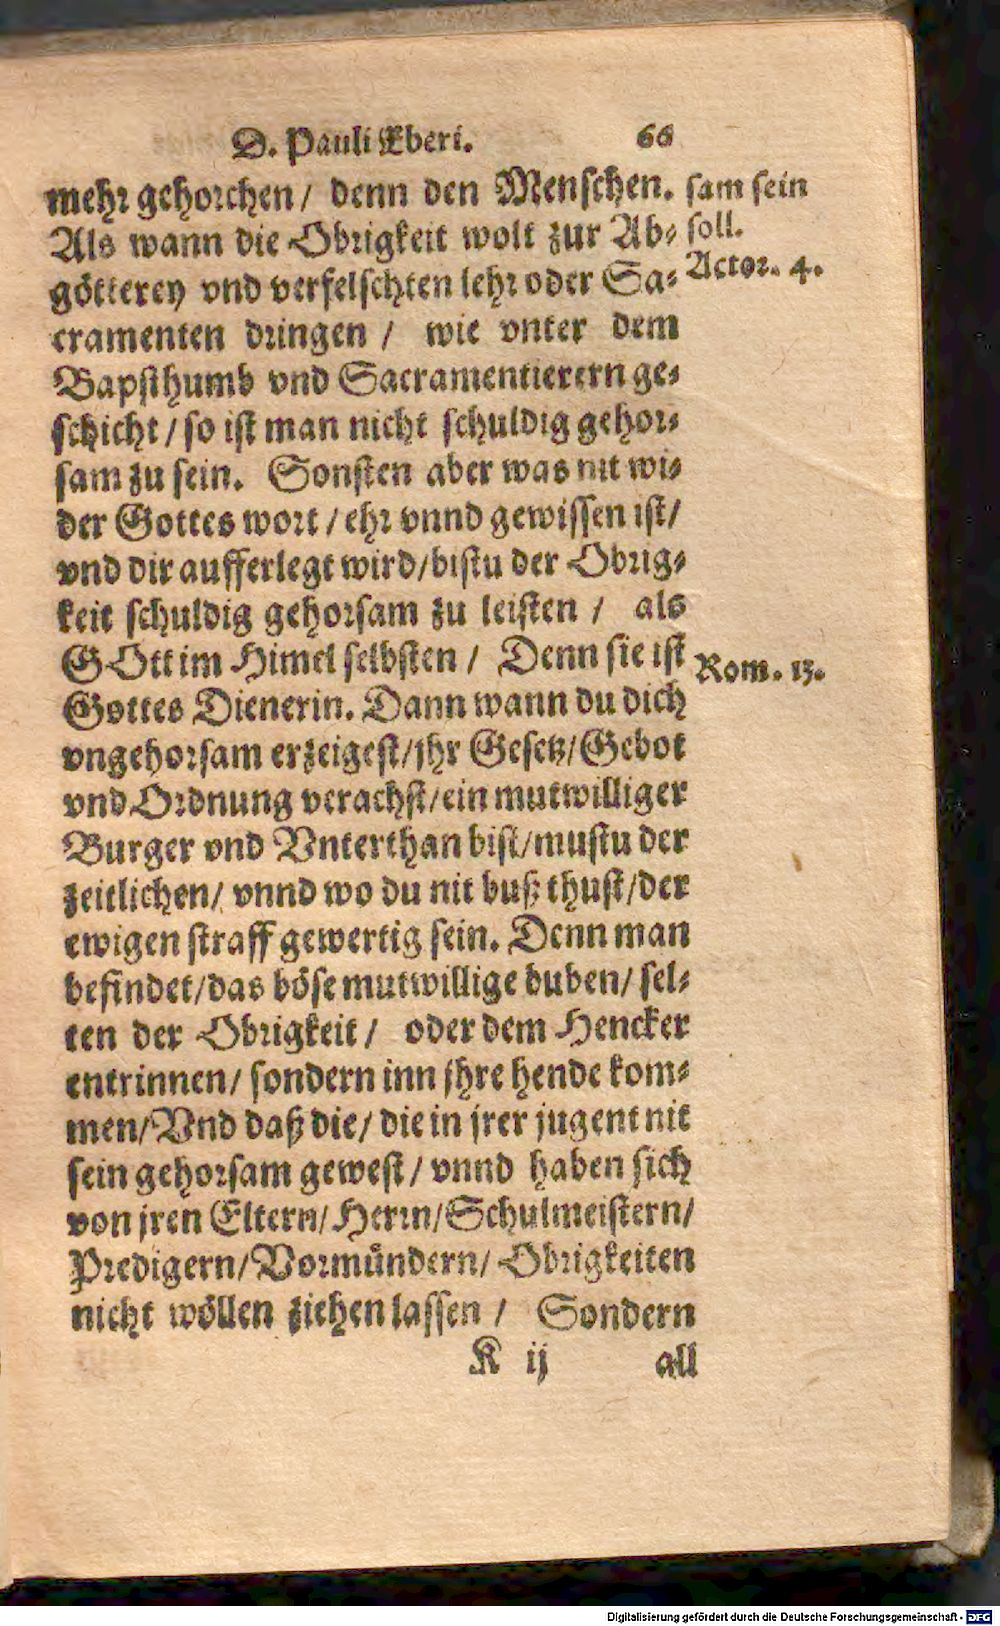 D. Pauli Eberi. 66
mehr gehorchen/ denn den Menschen. sam sein
Als wann die Obrigkeit wolt zur Ab- soll.
götterey vnd verfelschten lehr oder Sa- Actor. 4.
cramenten dringen / wie vnter dem
Bapsthumb vnd Sacramentierern ge-
schicht / so ist man nicht schuldig gehor-
sam zu sein. Sonsten aber was nit wi-
der Gottes wort / ehr vnnd gewissen ist/
vnd dir aufferlegt wird/bistu der Obrig-
keit schuldig gehorsam zu leisten / als
GOtt im Himel selbsten / Denn sie ist Rom. 13.
Gottes Dienerin. Dann wann du dich
vngehorsam erzeigest/jhr Gesetz/Gebot
vnd Ordnung verachst/ein mutwilliger
Burger vnd Vnterthan bist/mustu der
zeitlichen/ vnnd wo du nit buß thust/der
ewigen straff gewertig sein. Denn man
befindet/das böse mutwillige buben/ sel-
ten der Obrigkeit / oder dem Hencker
entrinnen/ sondern inn jhre hende kom-
men/Vnd daß die/ die in jrer jugent nit
sein gehorsam gewest / vnnd haben sich
von jren Eltern/ Herrn/Schulmeistern/
Predigern/Vormündern/ Obrigkeiten
nicht wöllen ziehen lassen / Sondern
K ij all
Digitalisierung gefördert durch die Deutsche Forschungsgemeinschaft - DFG